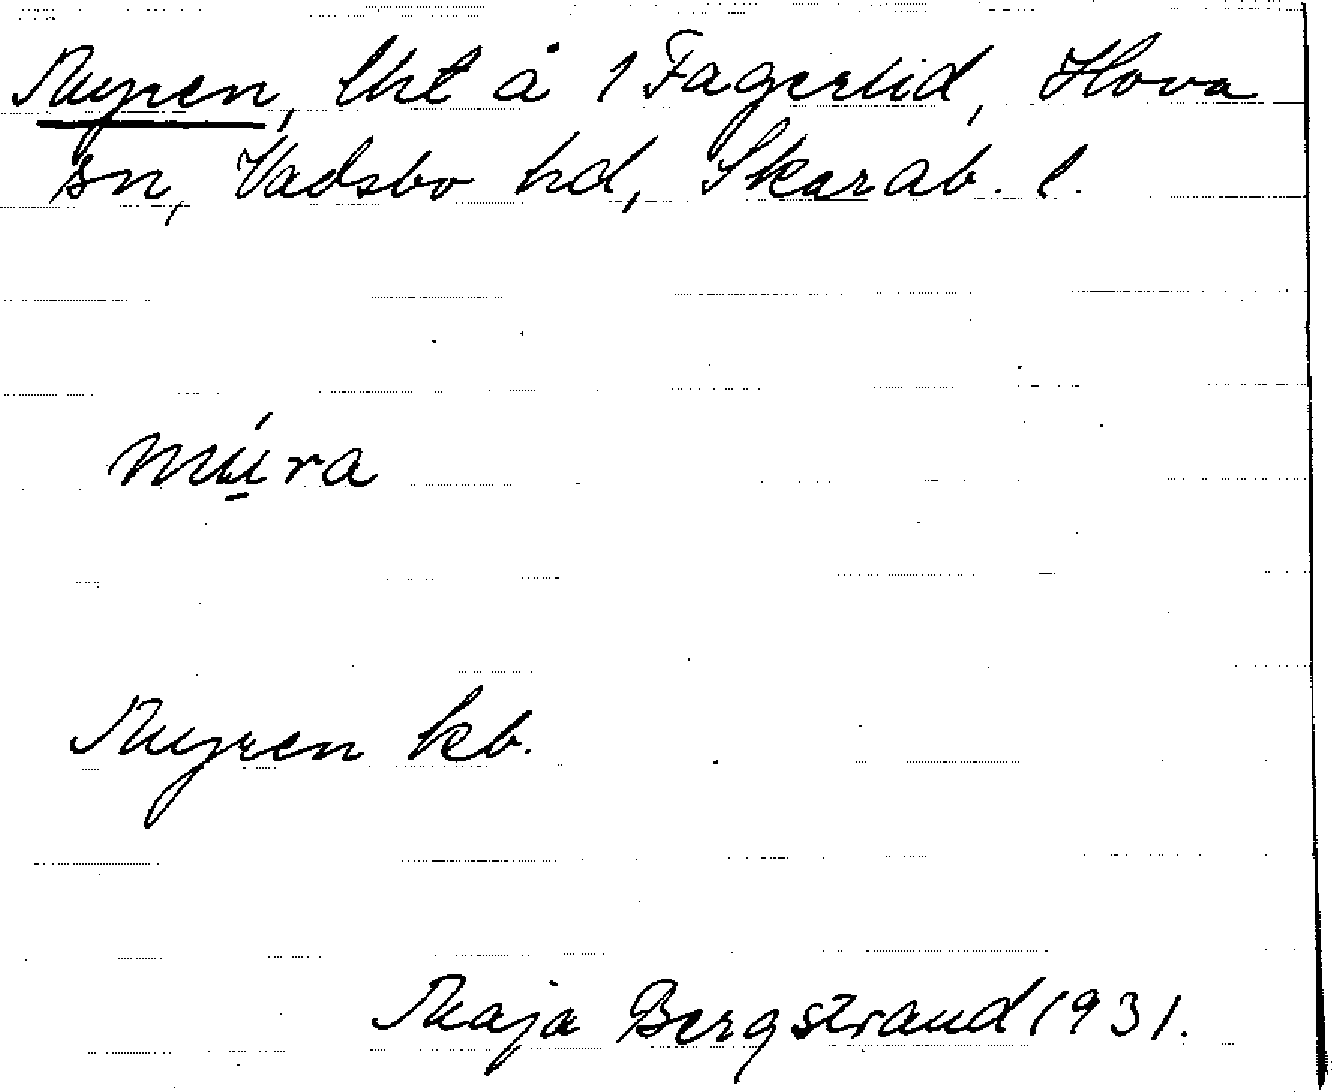 Myren, lht å 1 Fagerlid, Hova
sn, Vadsbo hd, Skarab. l.
mú̱ra
Myren kb.
Maja Bergstrand 1931.